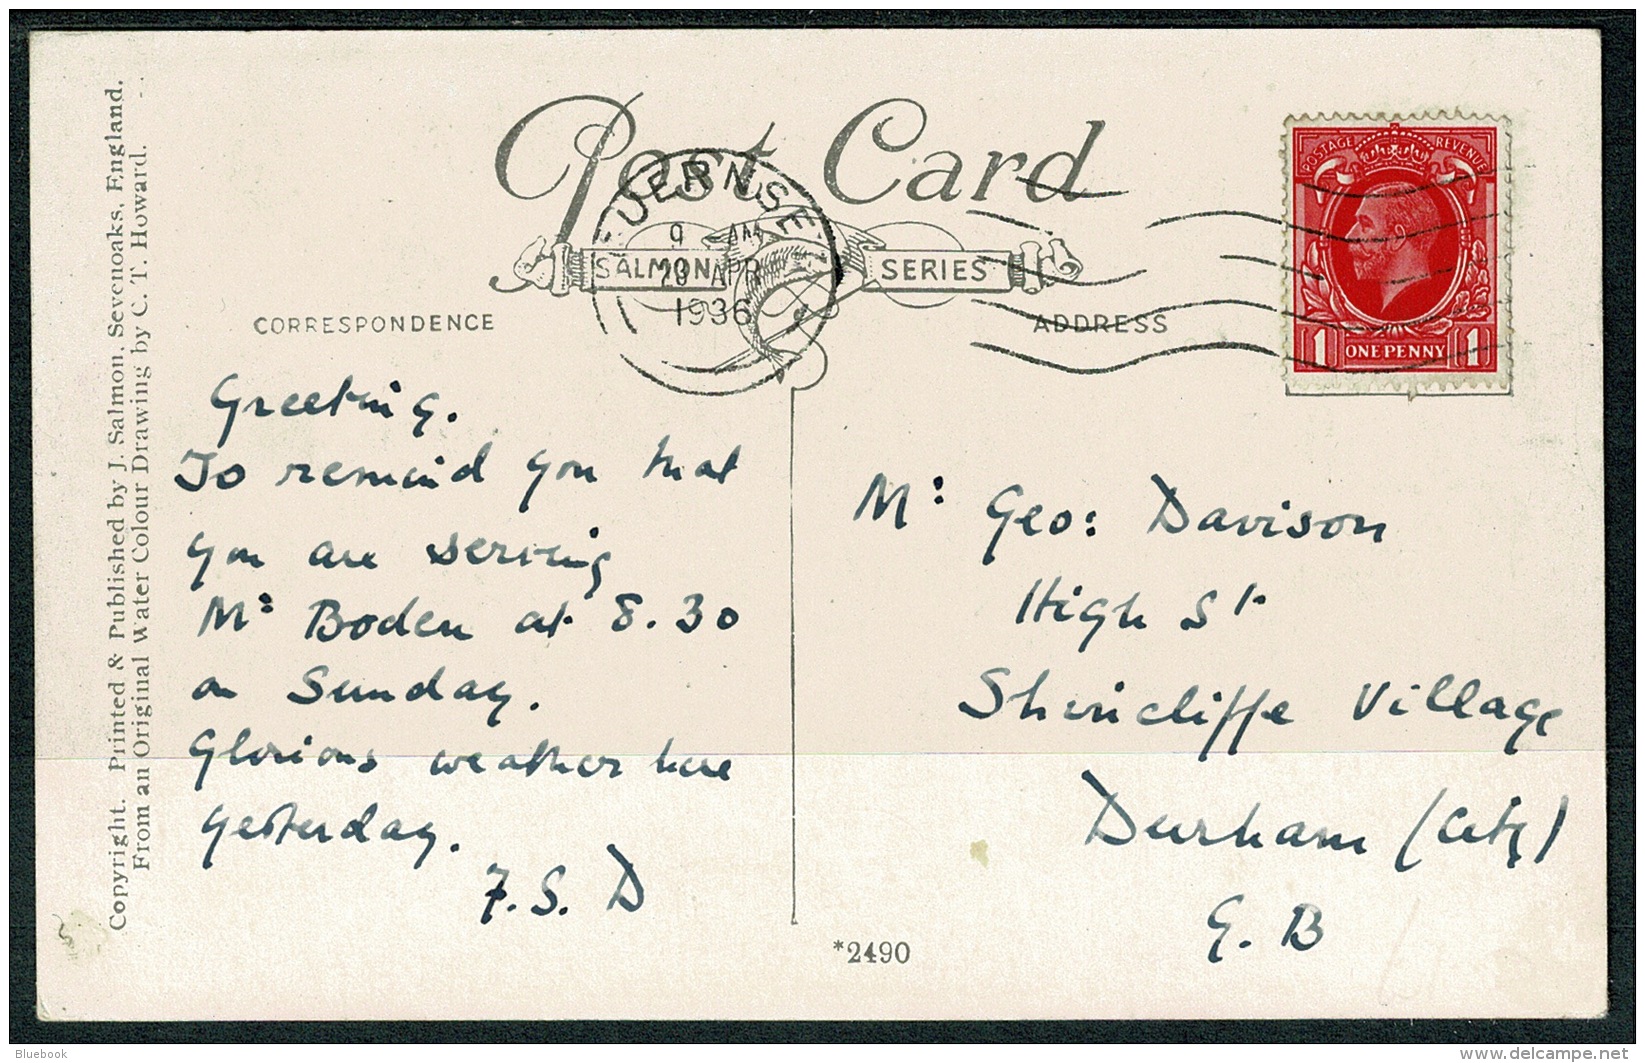 Post Card
SALMON SERIES
GUERNSEY
9 AM
APR
1936
POSTAGE REVENUE
1 ONE PENNY 1
CORRESPONDENCE
ADDRESS
Copyright. Printed & Published by J. Salmon, Sevenoaks, England.
From an Original Water Colour Drawing by C. T. Howard.
Greeting.
To remind you that
you are serving
Mr: Boden at 8.30
on Sunday.
Glorious weather here
yesterday.
F. S. D
Mr: Geo: Davison
High St
Shincliffe Village
Durham (City)
G. B
*2490
Bluebook
delcampe.net